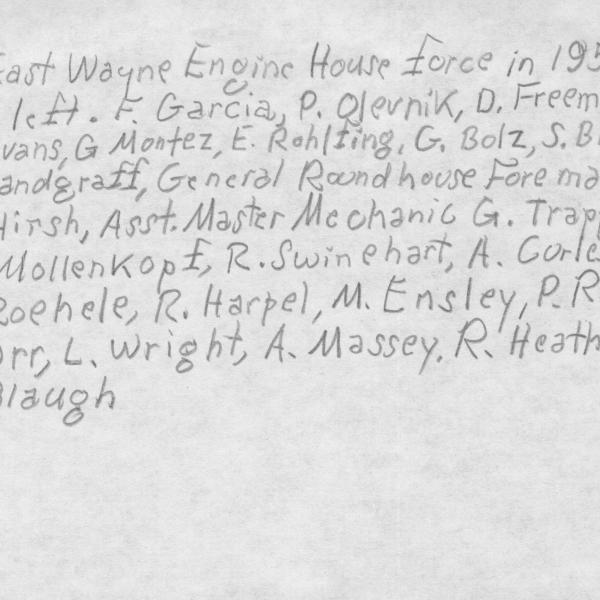 East Wayne Engine House force in 195
left. F. Garcia, P. Olevnik, D. Freem
vans, G Montez, E. Rohlfing, G. Bolz, S. B
andgraff, General Roundhouse Forema
Hirsh, Asst. Master Mechanic G. Trapp
Mollenkopf, R. Swinehart, A. Corle
Roehele, R. Harpel, M. Ensley, P. R
orr, L. Wright, A. Massey, R. Heath
Blaugh